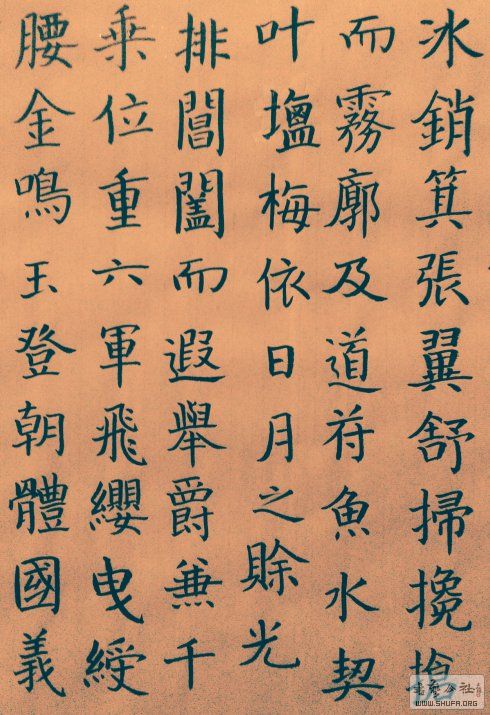 冰銷箕張翼舒掃攙搶
而霧廓及道苻魚水契
叶塩梅依日月之賒光
排閶闔而遐舉爵兼千
乘位重六軍飛纓曳綬
腰金鳴玉登朝體國義
書藝公社
WWW.SHUFA.ORG